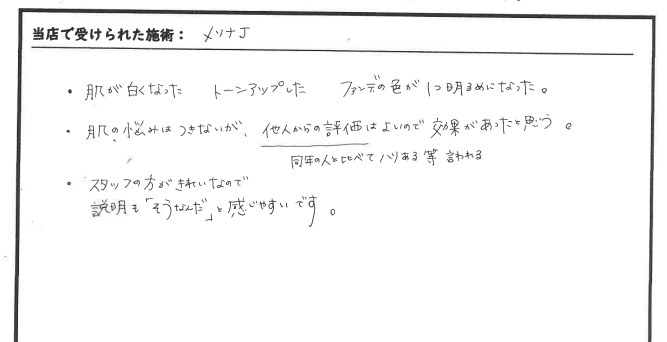 当店で受けられた施術： メソナJ
・肌が白くなった トーンアップした ファンデの色が1つ明るめになった。
・肌の悩みはつきないが、他人からの評価はよいので効果があったと思う。
同年の人と比べてハリある等言われる
・スタッフの方がきれいなので
説明も「そうなんだ」と感じやすいです。